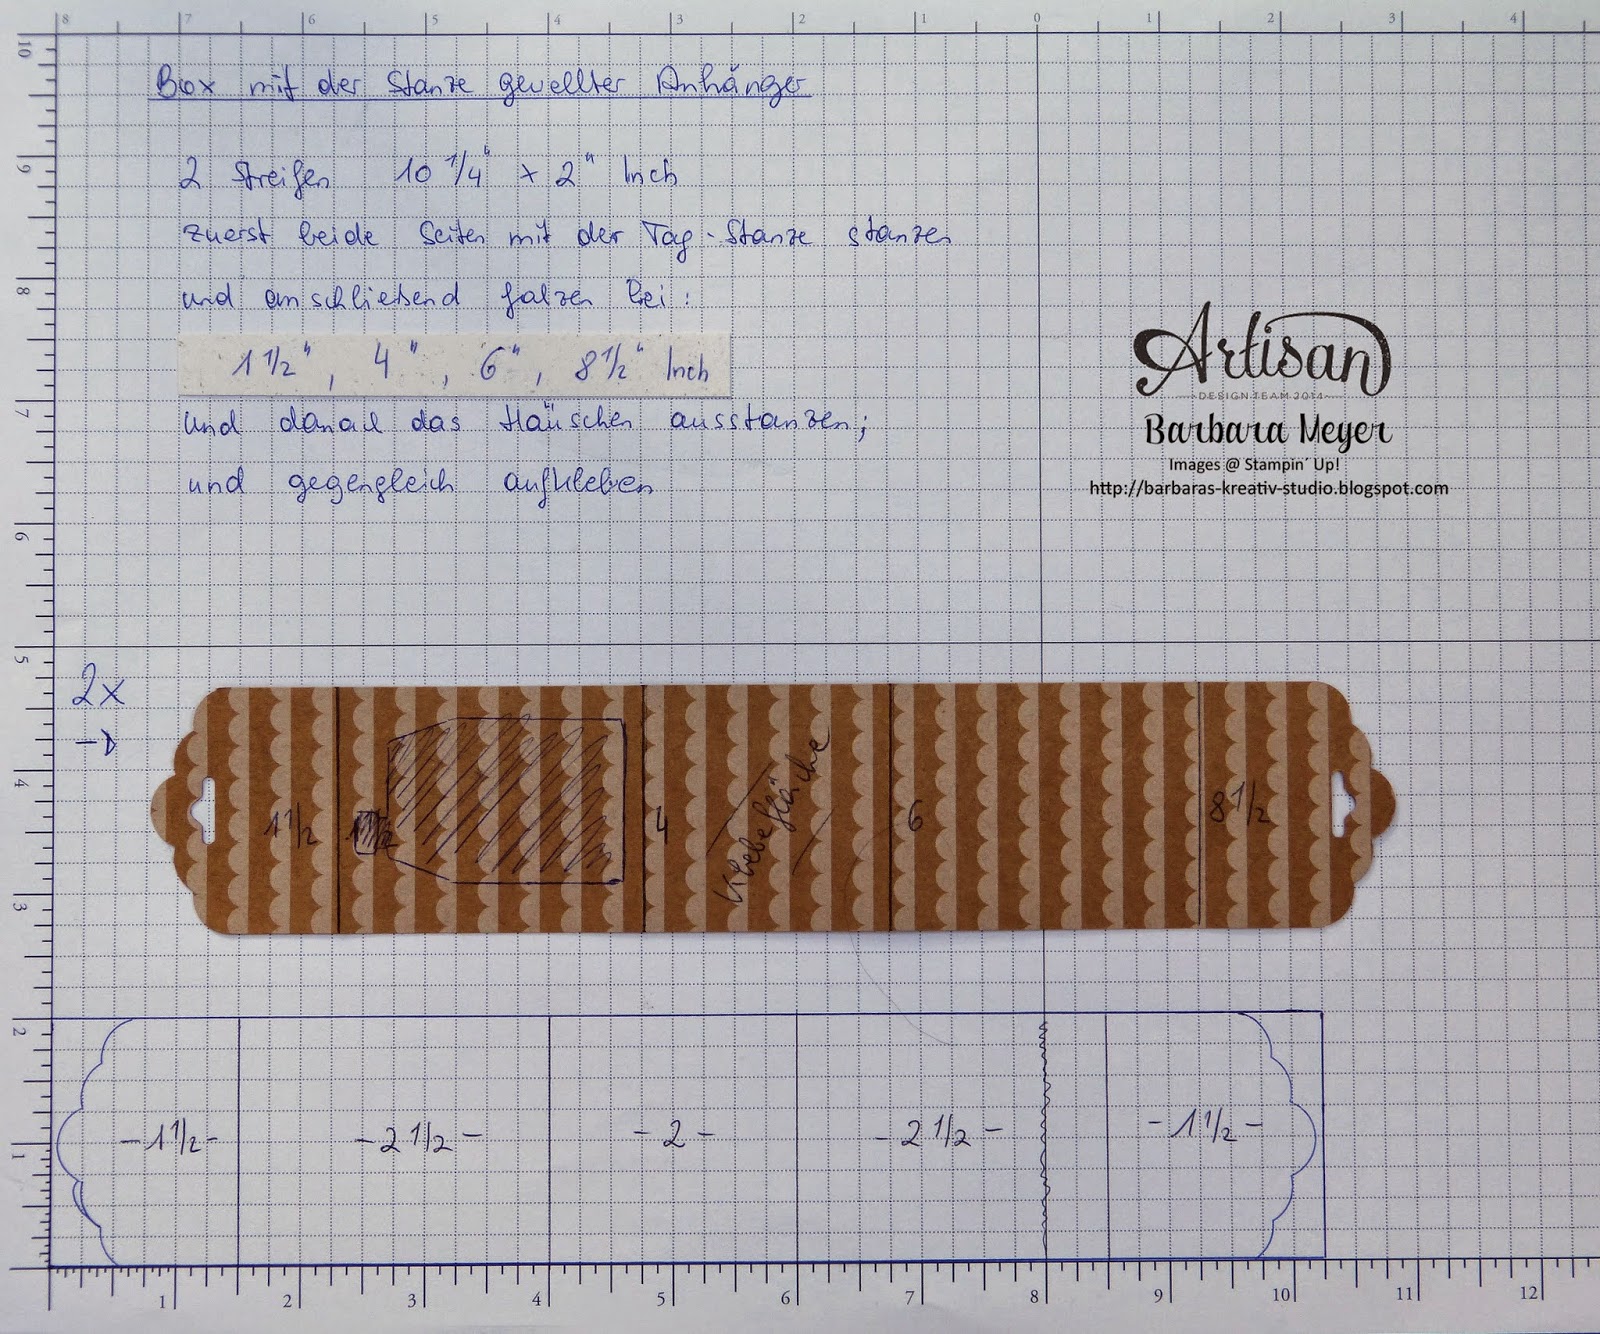 8 7 6 5 4 3 2 1 0 1 2 3 4
10
9
8
7
6
5
4
3
2
1
Box mit der Stanze gewellter Anhänger
2 Streifen 10 1/4" x 2" Inch
zuerst beide Seiten mit der Tag-Stanze stanzen
und anschließend falzen bei:
1 1/2", 4", 6", 8 1/2" Inch
und danach das Häuschen ausstanzen;
und gegengleich aufkleben
Artisan
DESIGN TEAM 2014
Barbara Meyer
Images @ Stampin´ Up!
http://barbaras-kreativ-studio.blogspot.com
2x
1 1/2 4 Klebefläche 6 8 1/2
- 1 1/2 - - 2 1/2 - - 2 - - 2 1/2 - - 1 1/2 -
1 2 3 4 5 6 7 8 9 10 11 12